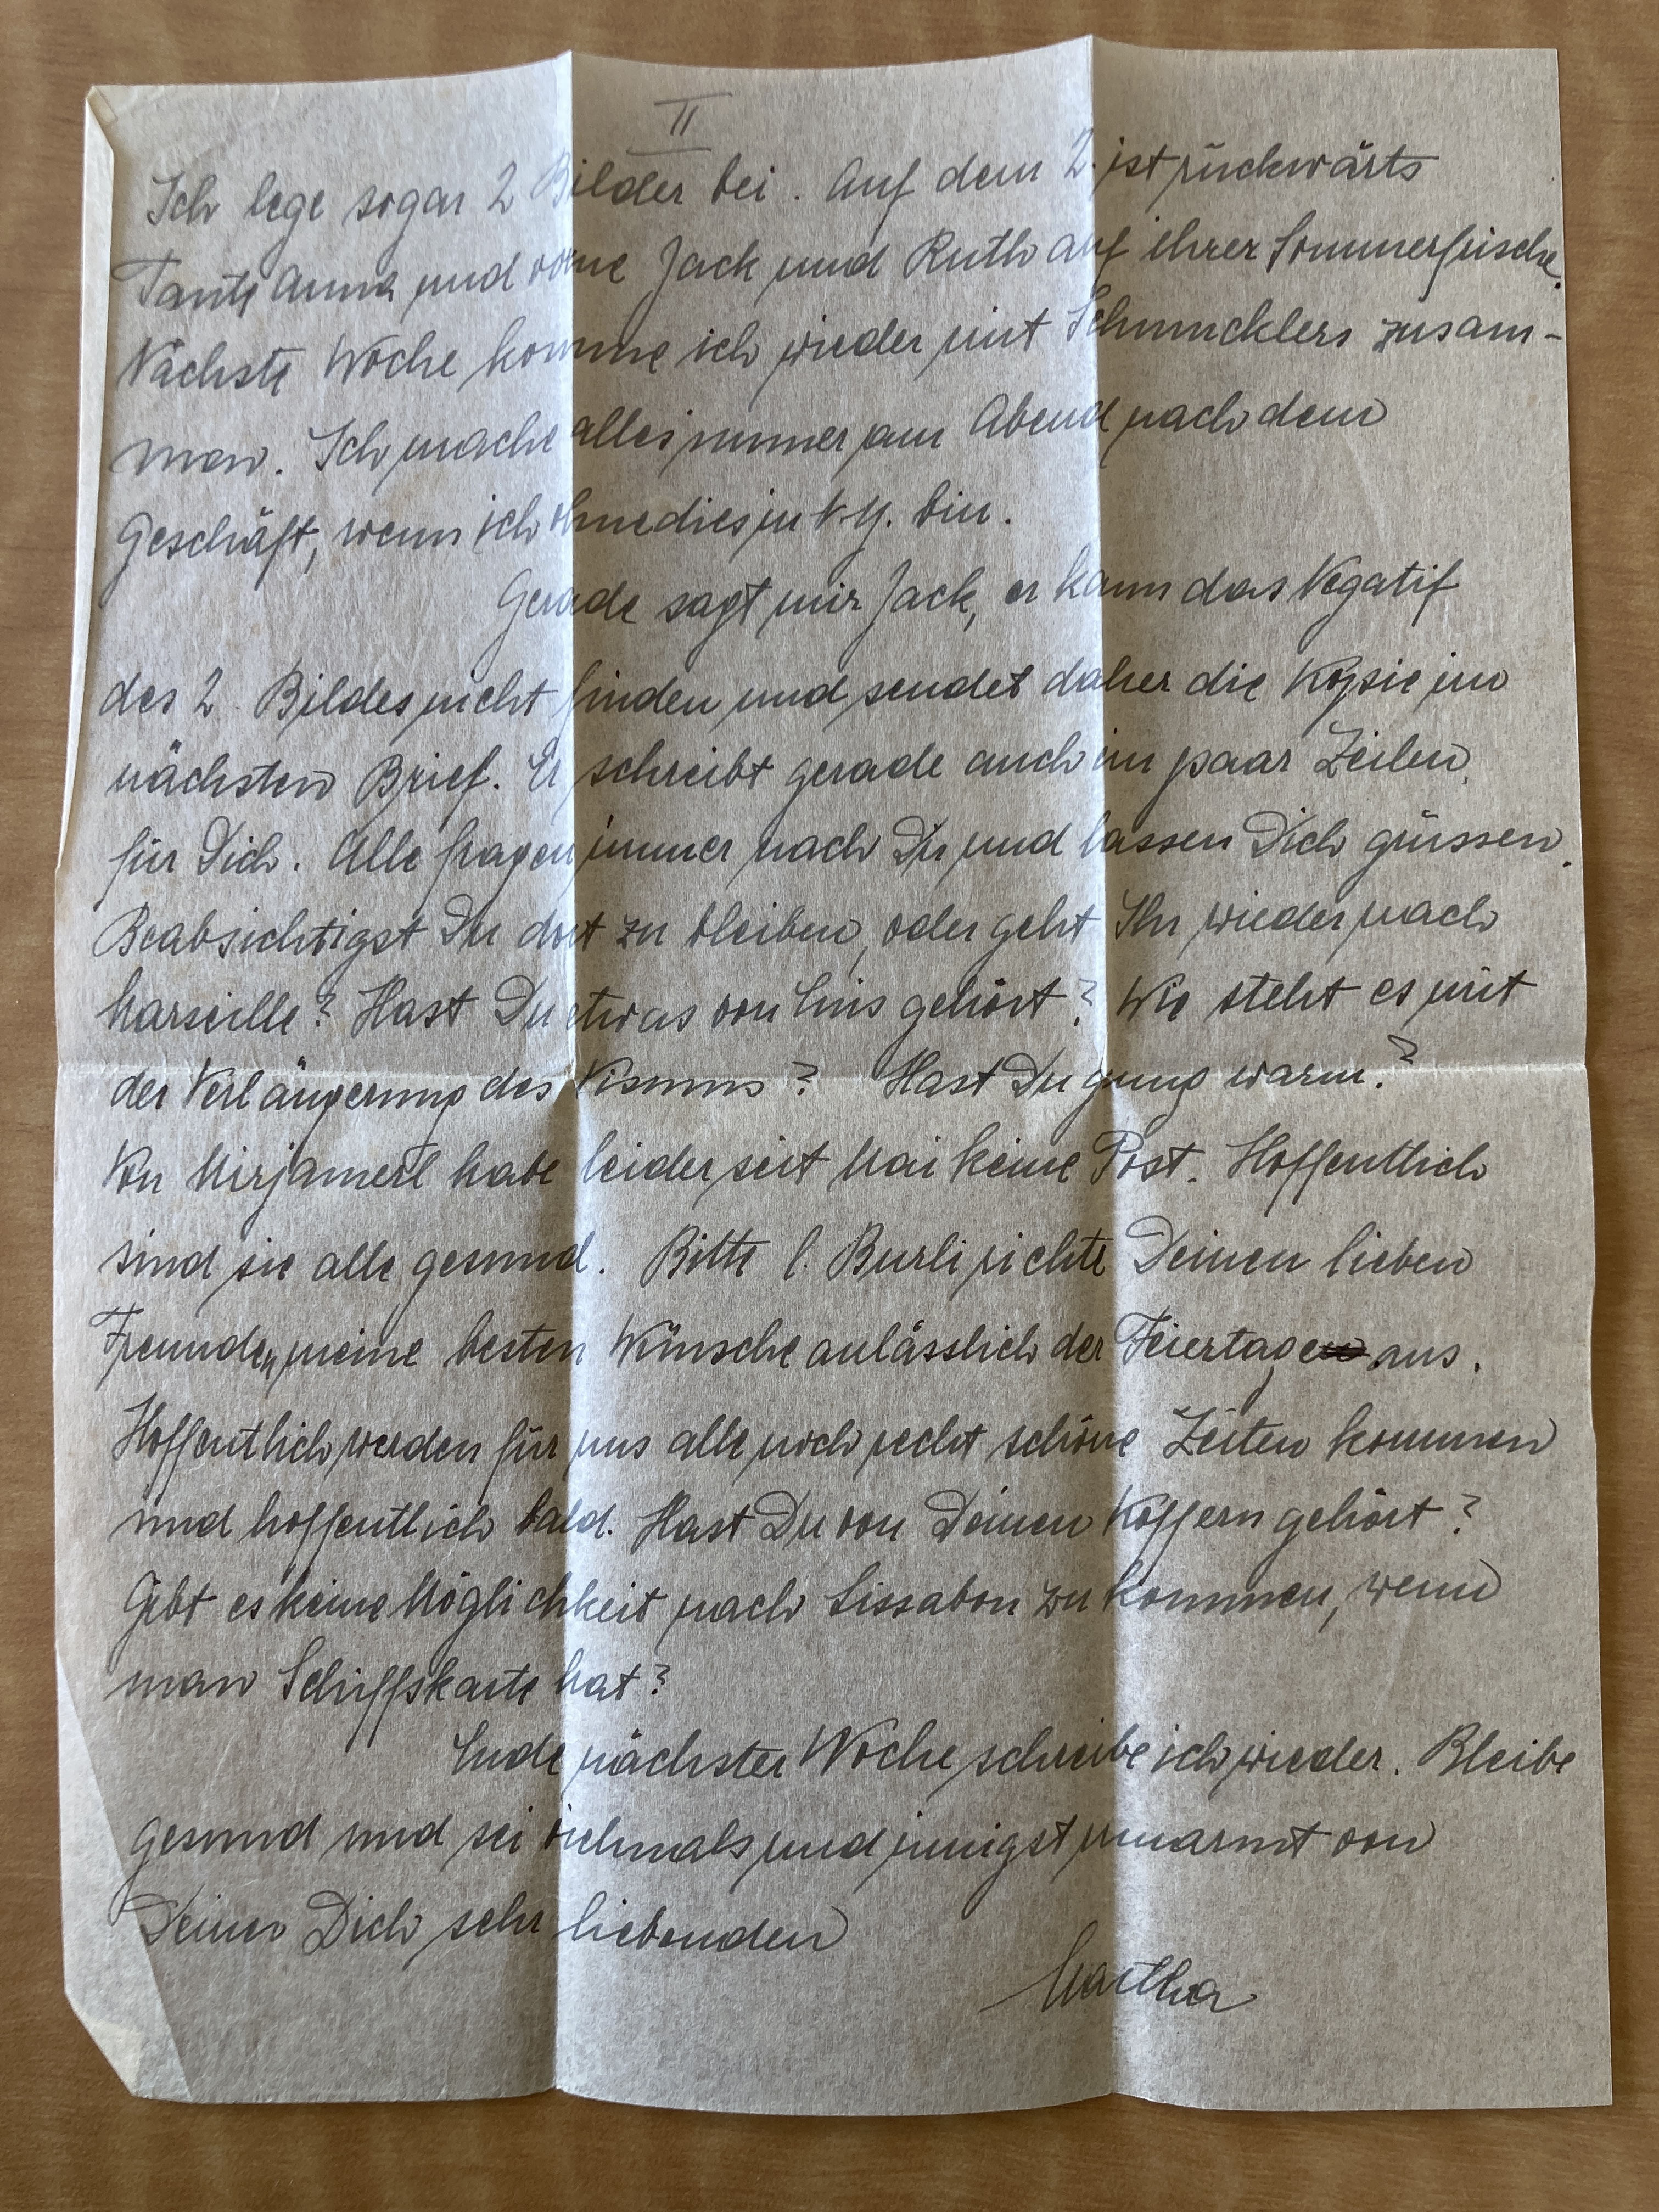 II
Ich lege sogar 2 Bilder bei. Auf dem 2. ist rückwärts
Tante Anna und vorne Jack und Ruth auf ihrer Sommerfrische.
Nächste Woche komme ich wieder mit Schmucklers zusam-
men. Ich mache alles immer am Abend nach dem
Geschäft, wenn ich ohnedies in N.Y. bin.
Gerade sagt mir Jack, er kann das Negatif
des 2. Bildes nicht finden und sendet daher die Kopie im
nächsten Brief. Er schreibt gerade auch ein paar Zeilen
für Dich. Alle fragen immer nach Dir und lassen Dich grüssen.
Beabsichtigst Du dort zu bleiben, oder geht Ihr wieder nach
Marseille? Hast Du etwas von gehört? Wie steht es mit
der Verlängerung des Visums? Hast Du genug warm?
Von Mirjamerl habe leider seit Mai keine Post. Hoffentlich
sind sie alle gesund. Bitte l. Burli richte Deinen lieben
Freunden meine besten Wünsche anlässlich der Feiertage aus.
Hoffentlich werden für uns alle noch recht schöne Zeiten kommen
und hoffentlich bald. Hast Du von Deinen Koffern gehört?
Gibt es keine Möglichkeit nach Lissabon zu kommen, wenn
man Schiffskarte hat?
Ende nächster Woche schreibe ich wieder. Bleibe
gesund und sei vielmals und innigst umarmt von
Deiner Dich sehr liebenden
Martha